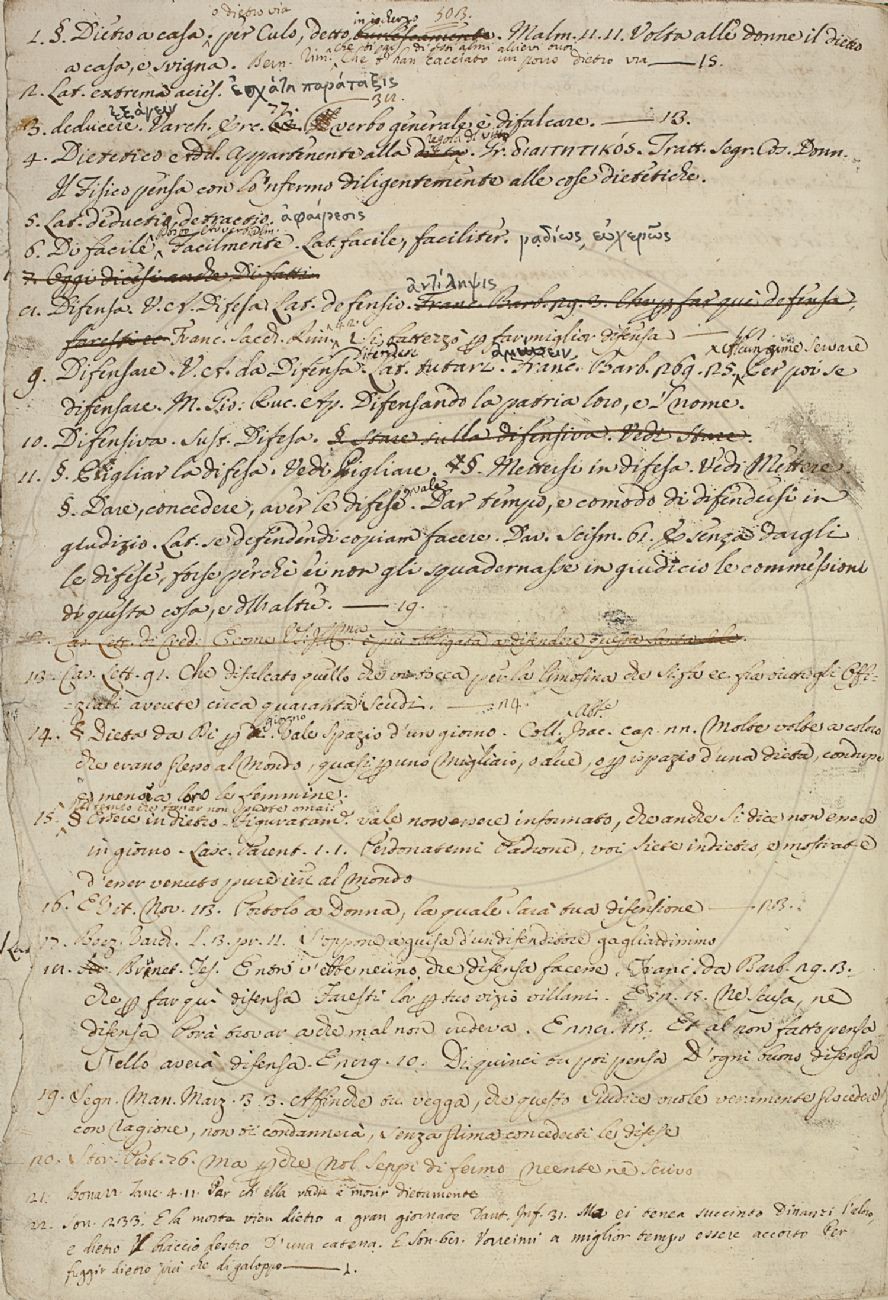 o dietro via
in ischerzo 503.
1. §. Dietro a casa, per Culo, detto burlescamente. Malm. 11. 11. Volta alle donne il dietro
a casa, e svigna. Bern. Rim. Che t' han cacciato un porro dietro via — 15.
2. Lat. extrema acies. ἐσχάτη παράταξις
ἐξάγειν 77. 312.
3. deducere. Varch. Erc. verbo generale è difalcare. — 13.
regola di vitto
4. Dietetico e Add. Appartenente alla dieta. Gr. διαιτητικός. Tratt. Segr. Cos. Donn.
Il Fisico pensa con lo 'nfermo diligentemente alle cose dietetiche.
5. Lat. deductio, detractio. ἀφαίρεσις
6. Di facile, Facilmente. Lat. facile, faciliter. ῥᾳδίως, εὐχερῶς
7. Oggi dicesi anche Di fatti.
ἀντίληψις
Difensa. V. A. Difesa. Lat. defensio. Franc. Barb. 29. 3. Che per far qui defensa,
faresti ec. Franc. Sacch. Rim. Si fattezzo per far miglior difensa
Difendere ἀμύνειν
9. Difensare. V. A. da Difensa. Lat. tutari. Franc. Barb. 269. 25. Per poi se
difensare. M. Gio: Ruc. Ap. Difensando la patria loro, e 'l nome.
10. Difensiva. Sust. Difesa. § Stare sulla difensiva. Vedi Stare.
11. §. Pigliar la difesa. Vedi Pigliare. §. Mettersi in difesa. Vedi Mettere
§. Dare, concedere, aver le difese, vale Dar tempo, e comodo di difendersi in
giudizio. Lat. se defendendi copiam facere. Dav. Scism. 61. senza dargli
le difese, forse perchè ei non gli squadernasse in giudicio le commessioni
di questa cosa, e d'altre. — 19.
Car. Lett. di Cred. E come è più obbligata a difendere questa Santa Sede.
13. Car. Lett. 91. Che difalcato quello che ne tocca per la limosina che si fa ec. fra tutti gli Offi-
ziali avrete circa quaranta scudi. — 24.
giorno Abb.
14. § Dieta da Di per vale Spazio d'un giorno. Coll. Isac. cap. 22. Molte volte a coloro
che erano fieno al Mondo, quasi per uno Migliaio, o due, o per ispazio d'una dieta, conduce
e menova loro le femmine.
15. § Essere indietro. Figuratam. vale non essere informato, che anche si dice non essere
in giorno. Lasc. Parent. 1. 1. Perdonatemi Padrone, voi siete indietro, e mostrate
d'esser venuto pure ieri al Mondo
16. E Vit. Nov. 13. Portolo a Donna, la quale sarà tua difensione — 123.
17. Boez. Varch. l. 3. pr. 11. S'oppone a guisa d'un difenditore gagliardissimo
Brunet. Tes. Entrò v'ebbe neuno, che difensa facene. Franc. da Barb. 29. 13.
che per far qui difensa Faresti lor per tuo vizio villani. E 50. 15. Ne scusa, nè
difensa Porà trovar a che mal non cedeva. E 221. 15. Et al non fatto pensa
S'ello averà difensa. E 229. 10. Di quinci tu poi pensa D'ogni buono difensa
19. Segn. Man. Marz. 3. 3. Affinchè tu vegga, che questo Giudice vuole veramente procedere
con ragione, non ti condannerà, senza prima concederti le difese
20. Stor. Pist. 26. Ma perchè nol seppi di fermo neente ne scrivo
21. Bonarr. Tanc. 4. 11. Par ch'ella vada a morir dietamente
22. Son. 233. E la morte vien dietro a gran giornate Dant. Inf. 31. Ma ei tenea succinto Dinanzi l'altro,
e dietro il braccio destro D'una catena. E Son. 61. Vorreimi a miglior tempo essere accorto Per
fuggir dietro più che di galoppo — 1.